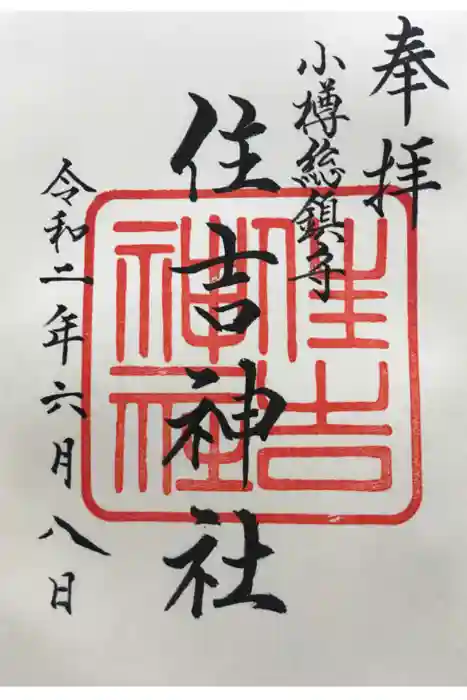 奉拝
小樽総鎮守
住吉神社
令和二年六月八日
住吉
神社